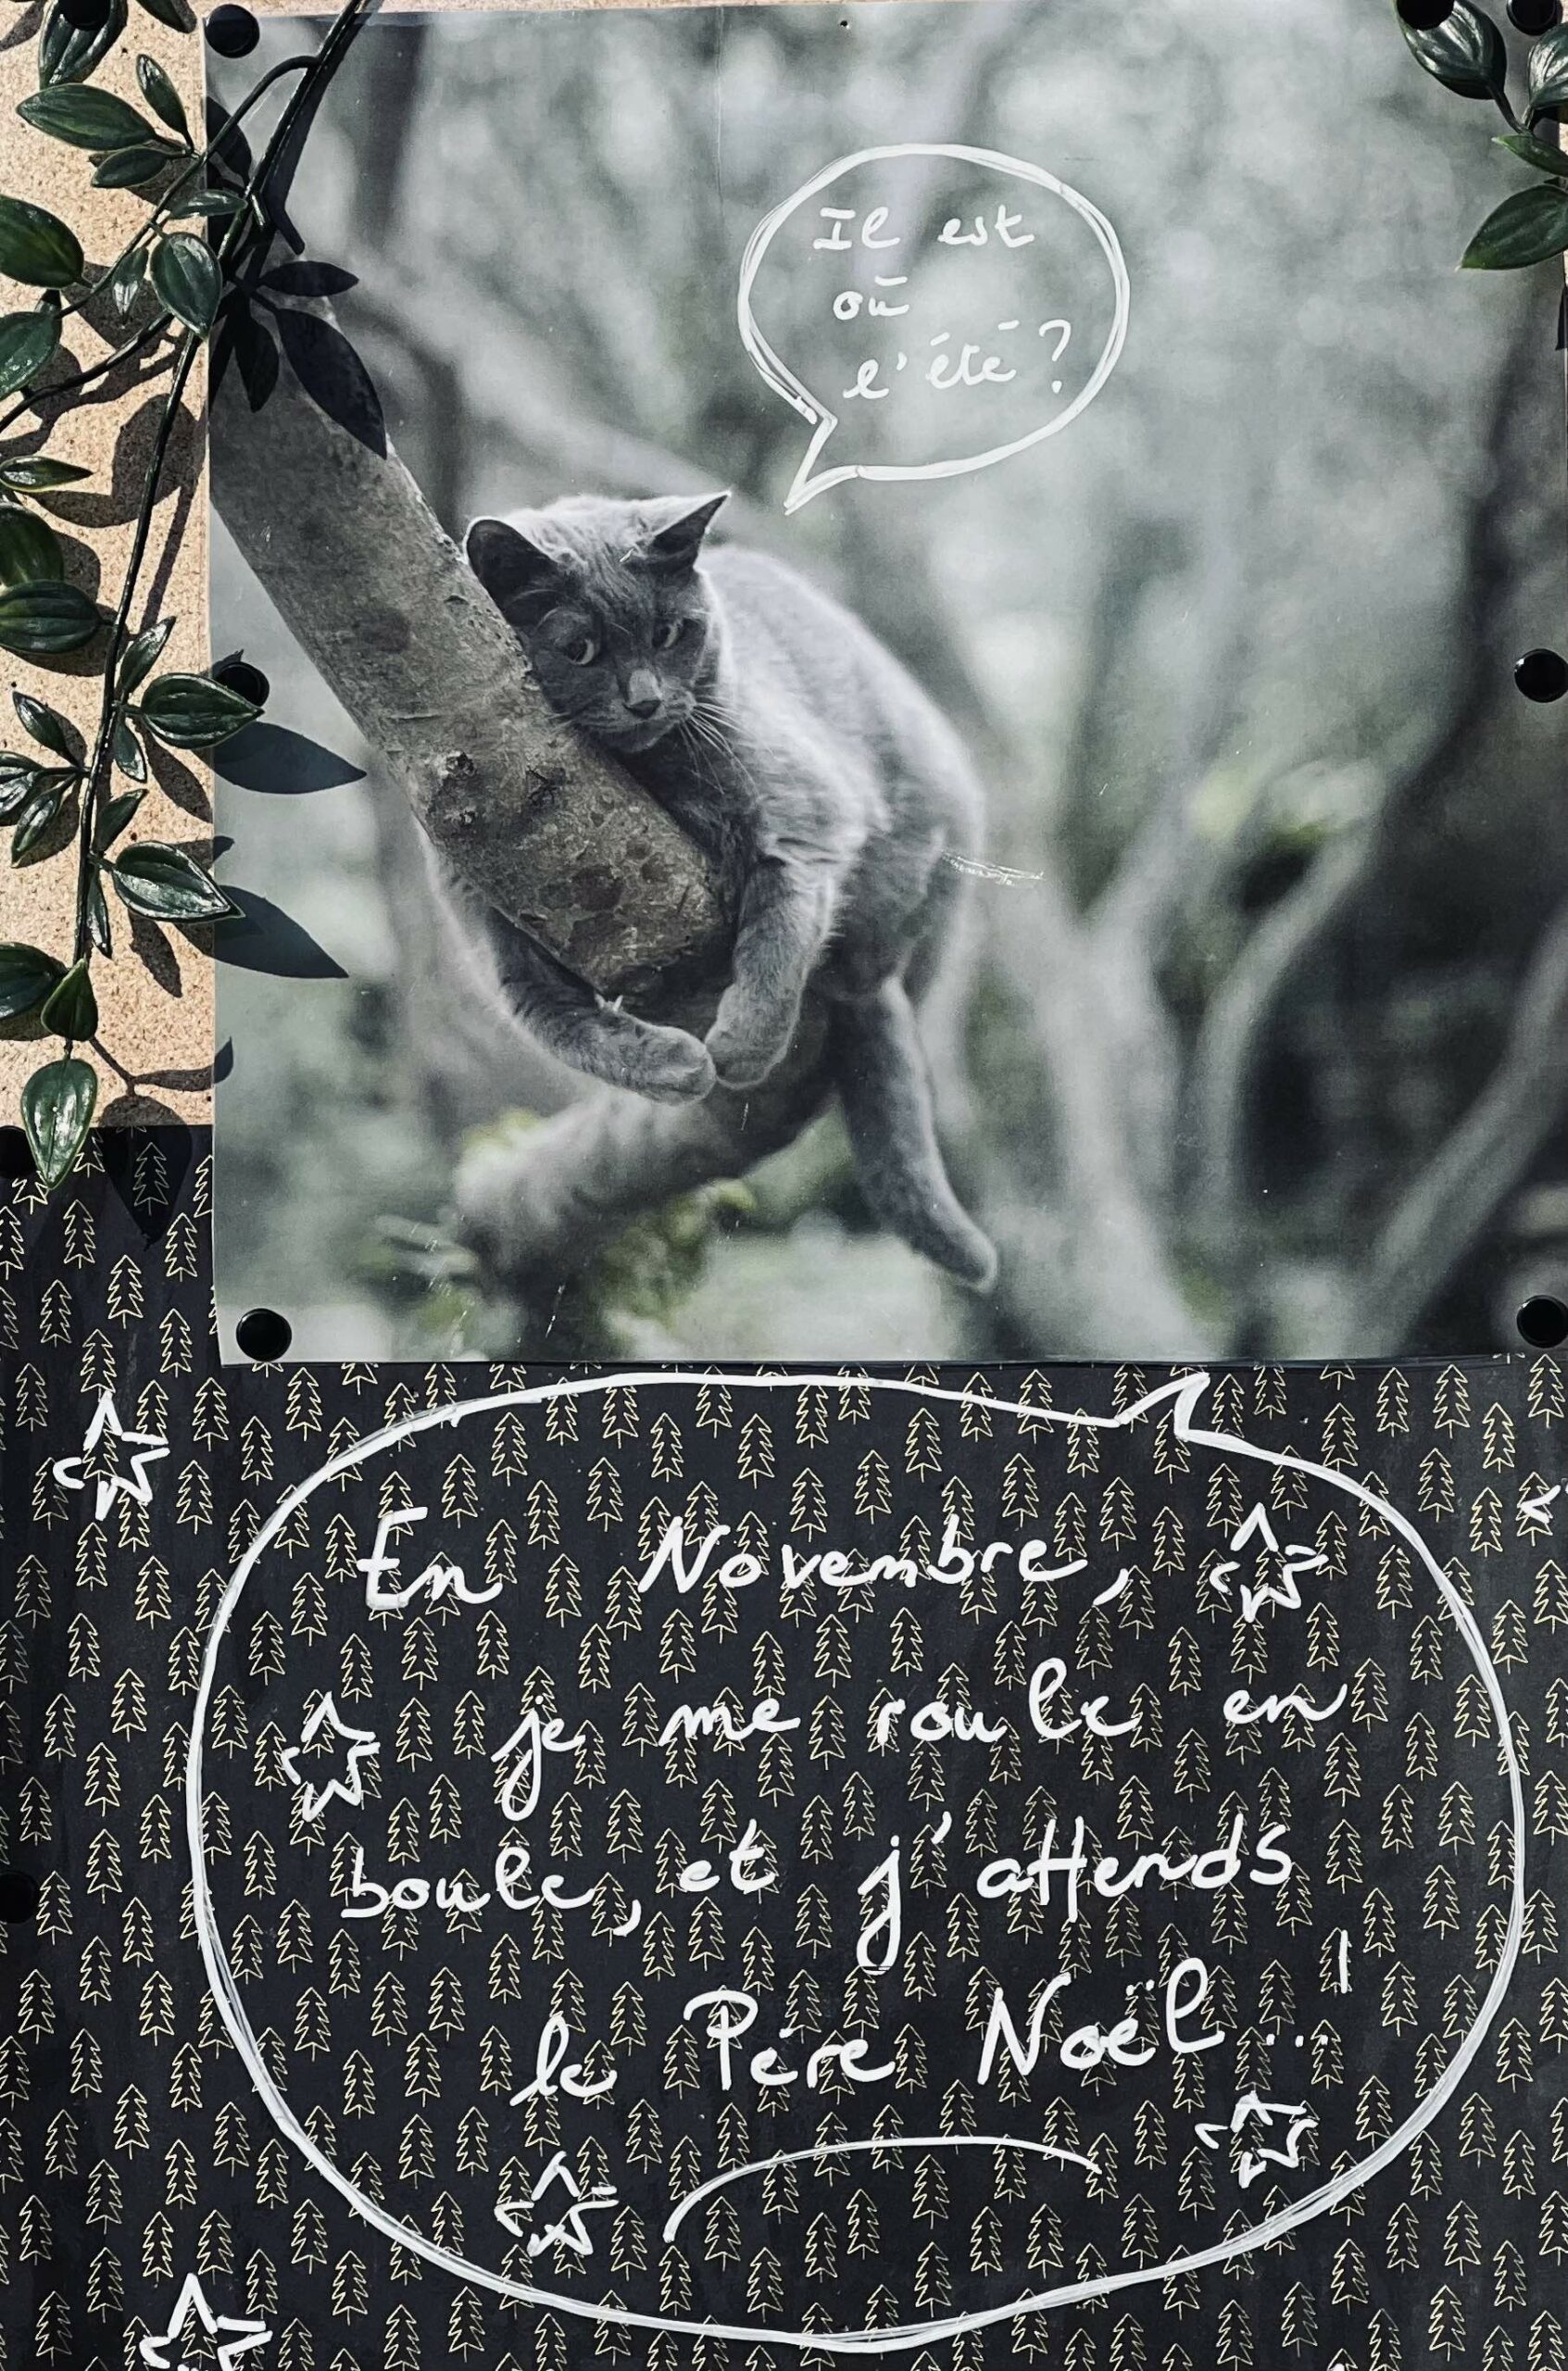 Il est
où
l'été ?
En Novembre,
je me roule en
boule, et j'attends
le Père Noël... !